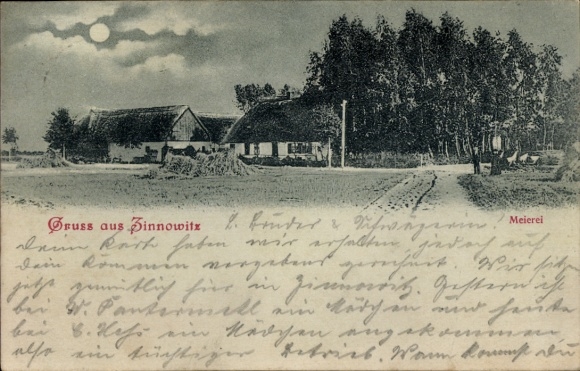 Gruss aus Zinnowitz
Meierei
L. Bruder & Schwägerin!
Deine Karte haben wir erhalten, jedoch auf
Dein Kommen vergebens gerechnet. Wir
jetzt gemütlich hier in Zinnowitz. Gestern ist
bei W. ein Mädchen und heute
bei C. ein Mädchen angekommen
also ein tüchtiger Betrieb. Wann kommst Du